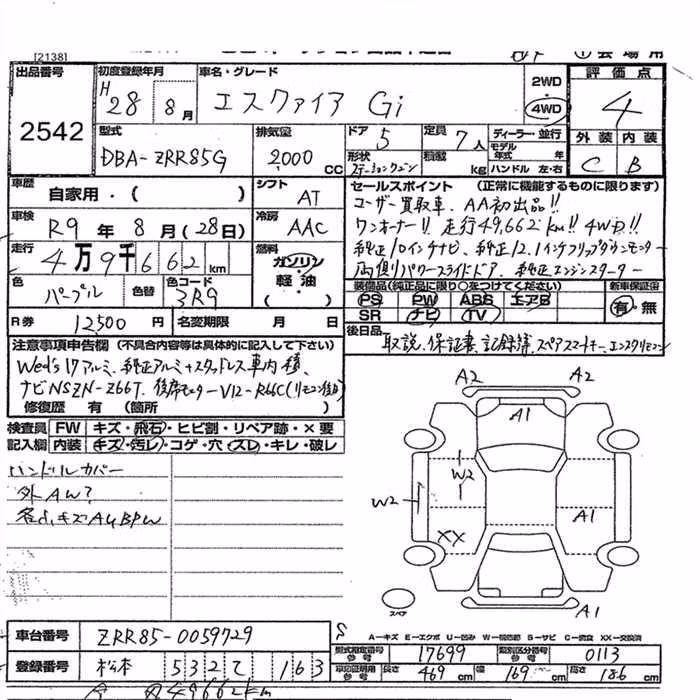 [2138]
① 会場用
出品番号
2542
初度登録年月
H28 8月
車名・グレード
エスクァイア Gi
2WD
・
4WD
評価点
4
型式
DBA-ZRR85G
排気量
2000 CC
ドア
5
定員
7人
形状
ステーションワゴン
積載
kg
ディーラー・並行
モデル年式 年
ハンドル 左・右
外装 内装
C B
車歴
自家用・( )
シフト
AT
車検
R9年8月(28日)
冷房
AAC
走行
4万9千662km
燃料
ガソリン
・
軽油
( )
色
パープル
色替
色コード
3R9
R券 12,500円
名変期限 月 日
セールスポイント (正常に機能するものに限ります)
ユーザー買取車、AA初出品!!
ワンオーナー!! 走行49,662km!! 4WD!!
純正10インチナビ、純正12.1インチフリップダウンモニター
両側パワースライドドア、純正エンジンスターター
装備品(純正品に限り○をつけてください) 新車保証書
PS PW ABS エアB
SR ナビ TV
有・無
後日品
取説、保証書、記録簿、スペアスマートキー、エンスタリモコン
注意事項申告欄 (不具合内容等は具体的に記入して下さい)
Wed's17アルミ、純正アルミ+スタッドレス車内積、
ナビNSZN-Z66T、後席モニターV12-R66C(リモコン後日)
修復歴 有 (箇所 )
検査員記入欄
FW キズ・飛石・ヒビ割・リペア跡・×要
内装 キズ・汚レ・コゲ・穴・スレ・キレ・破レ
ハンドルカバー
外AW?
各少キズAUBPW
A2 A2
A1
W2
W2
A1
XX
スペア
A1
A-キズ E-エクボ U-凹み W-補修跡 S-サビ C-腐食 XX-交換済
車台番号
ZRR85-0059729
登録番号
松本 532 て 163
型式指定番号 参考
17699
類別区分番号 参考
0113
車検証記載寸法 参考
長さ 469 cm
幅 169 cm
高さ 186 cm
49662km